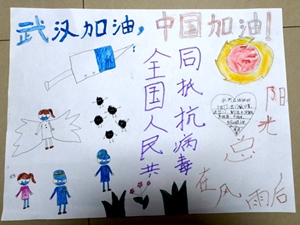 武汉加油,中国加油!
全国人民共
同抵抗病毒
阳光总
在风雨后